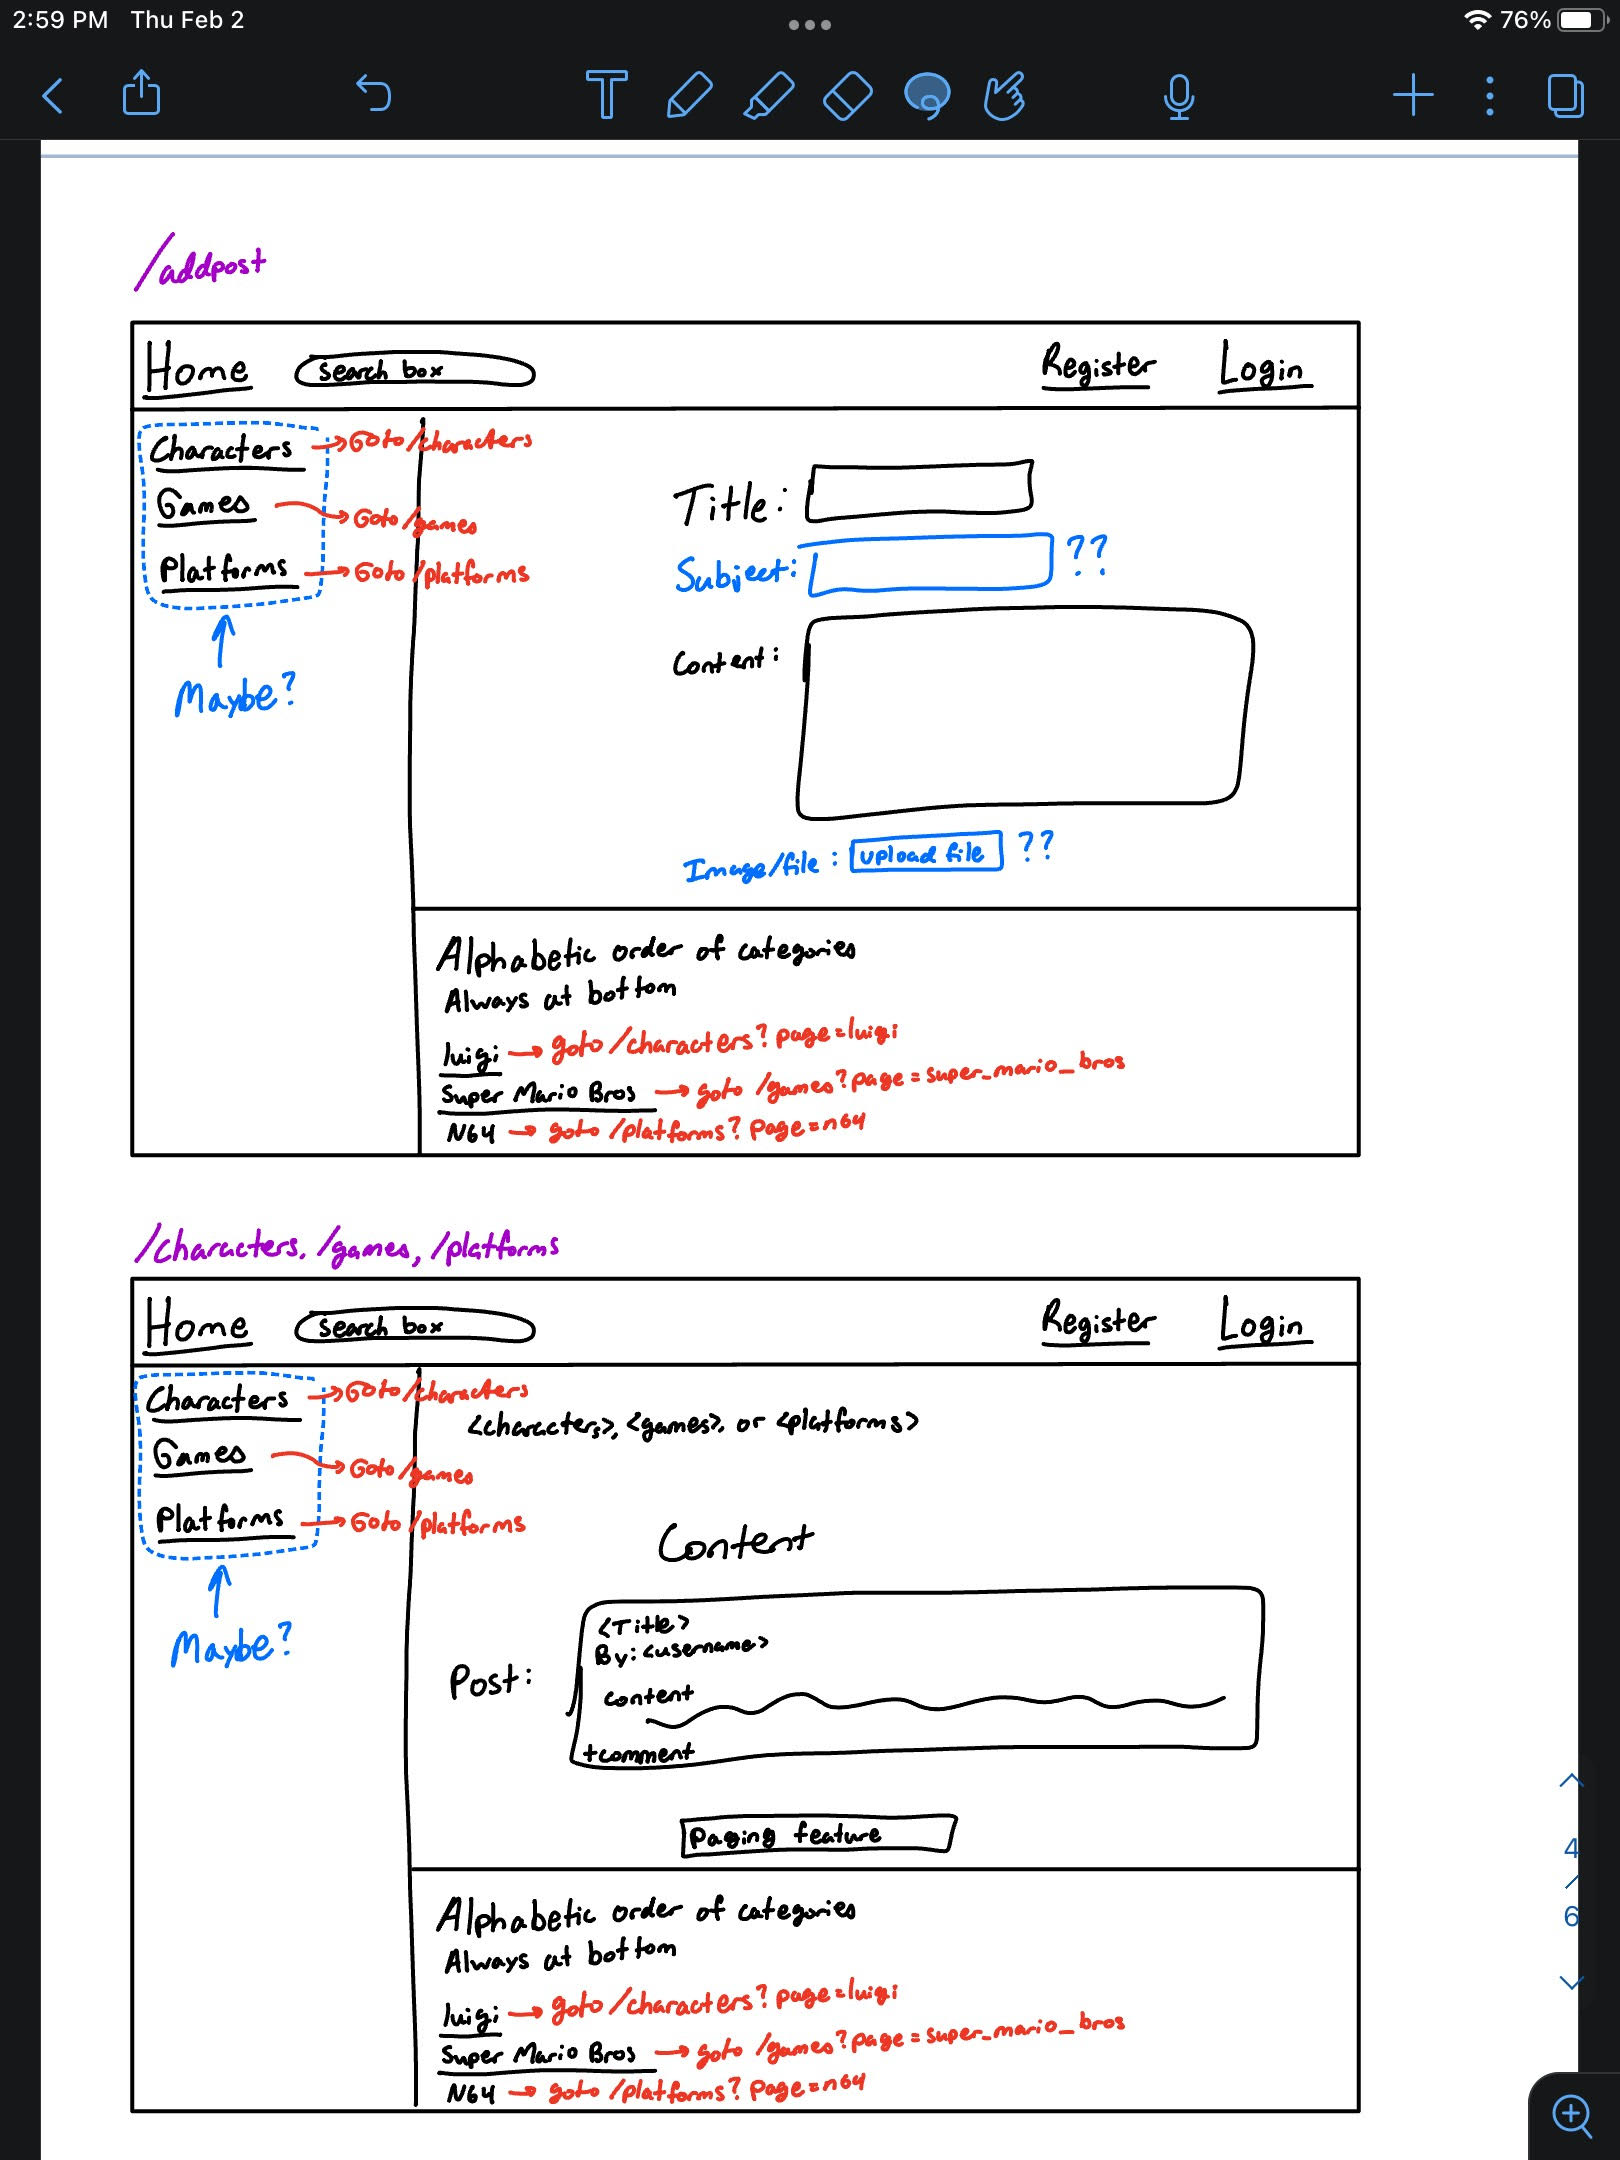 2:59 PM Thu Feb 2
76%
T
/addpost
Home
search box
Register
Login
Characters → Goto /characters
Games → Goto /games
Platforms → Goto /platforms
Maybe?
Title:
Subject: ??
Content:
Image/file: upload file ??
Alphabetic order of categories
Always at bottom
luigi → goto /characters?page=luigi
Super Mario Bros → goto /games?page=super_mario_bros
N64 → goto /platforms?page=n64
/characters, /games, /platforms
Home
search box
Register
Login
Characters → Goto /characters
Games → Goto /games
Platforms → Goto /platforms
Maybe?
<characters>, <games>, or <platforms>
Content
Post:
<Title>
By: <username>
content
+comment
Paging feature
4
/
6
Alphabetic order of categories
Always at bottom
luigi → goto /characters?page=luigi
Super Mario Bros → goto /games?page=super_mario_bros
N64 → goto /platforms?page=n64